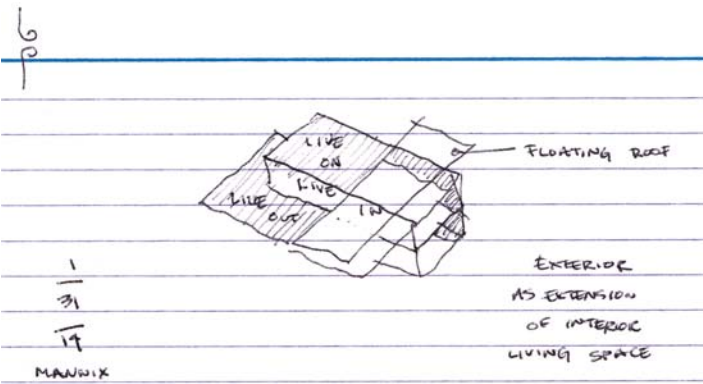 LIVE
ON
LIVE
IN
LIVE
OUT
FLOATING ROOF
EXTERIOR
AS EXTENSION
OF INTERIOR
LIVING SPACE
1
31
14
MANNIX